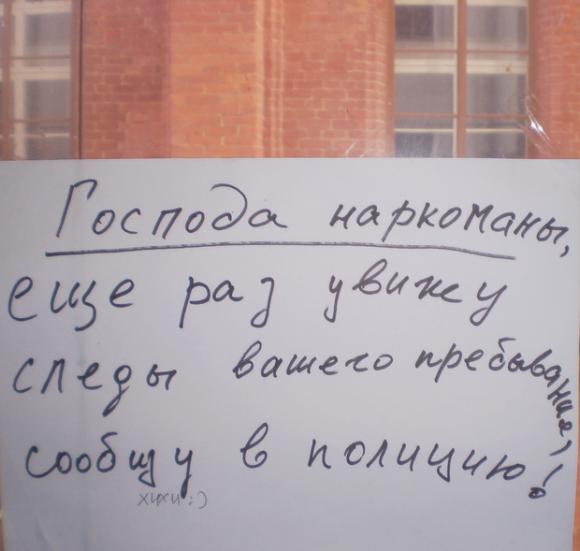 Господа наркоманы,
еще раз увижу
следы вашего пребывания,
сообщу в полицию!
хихи :)